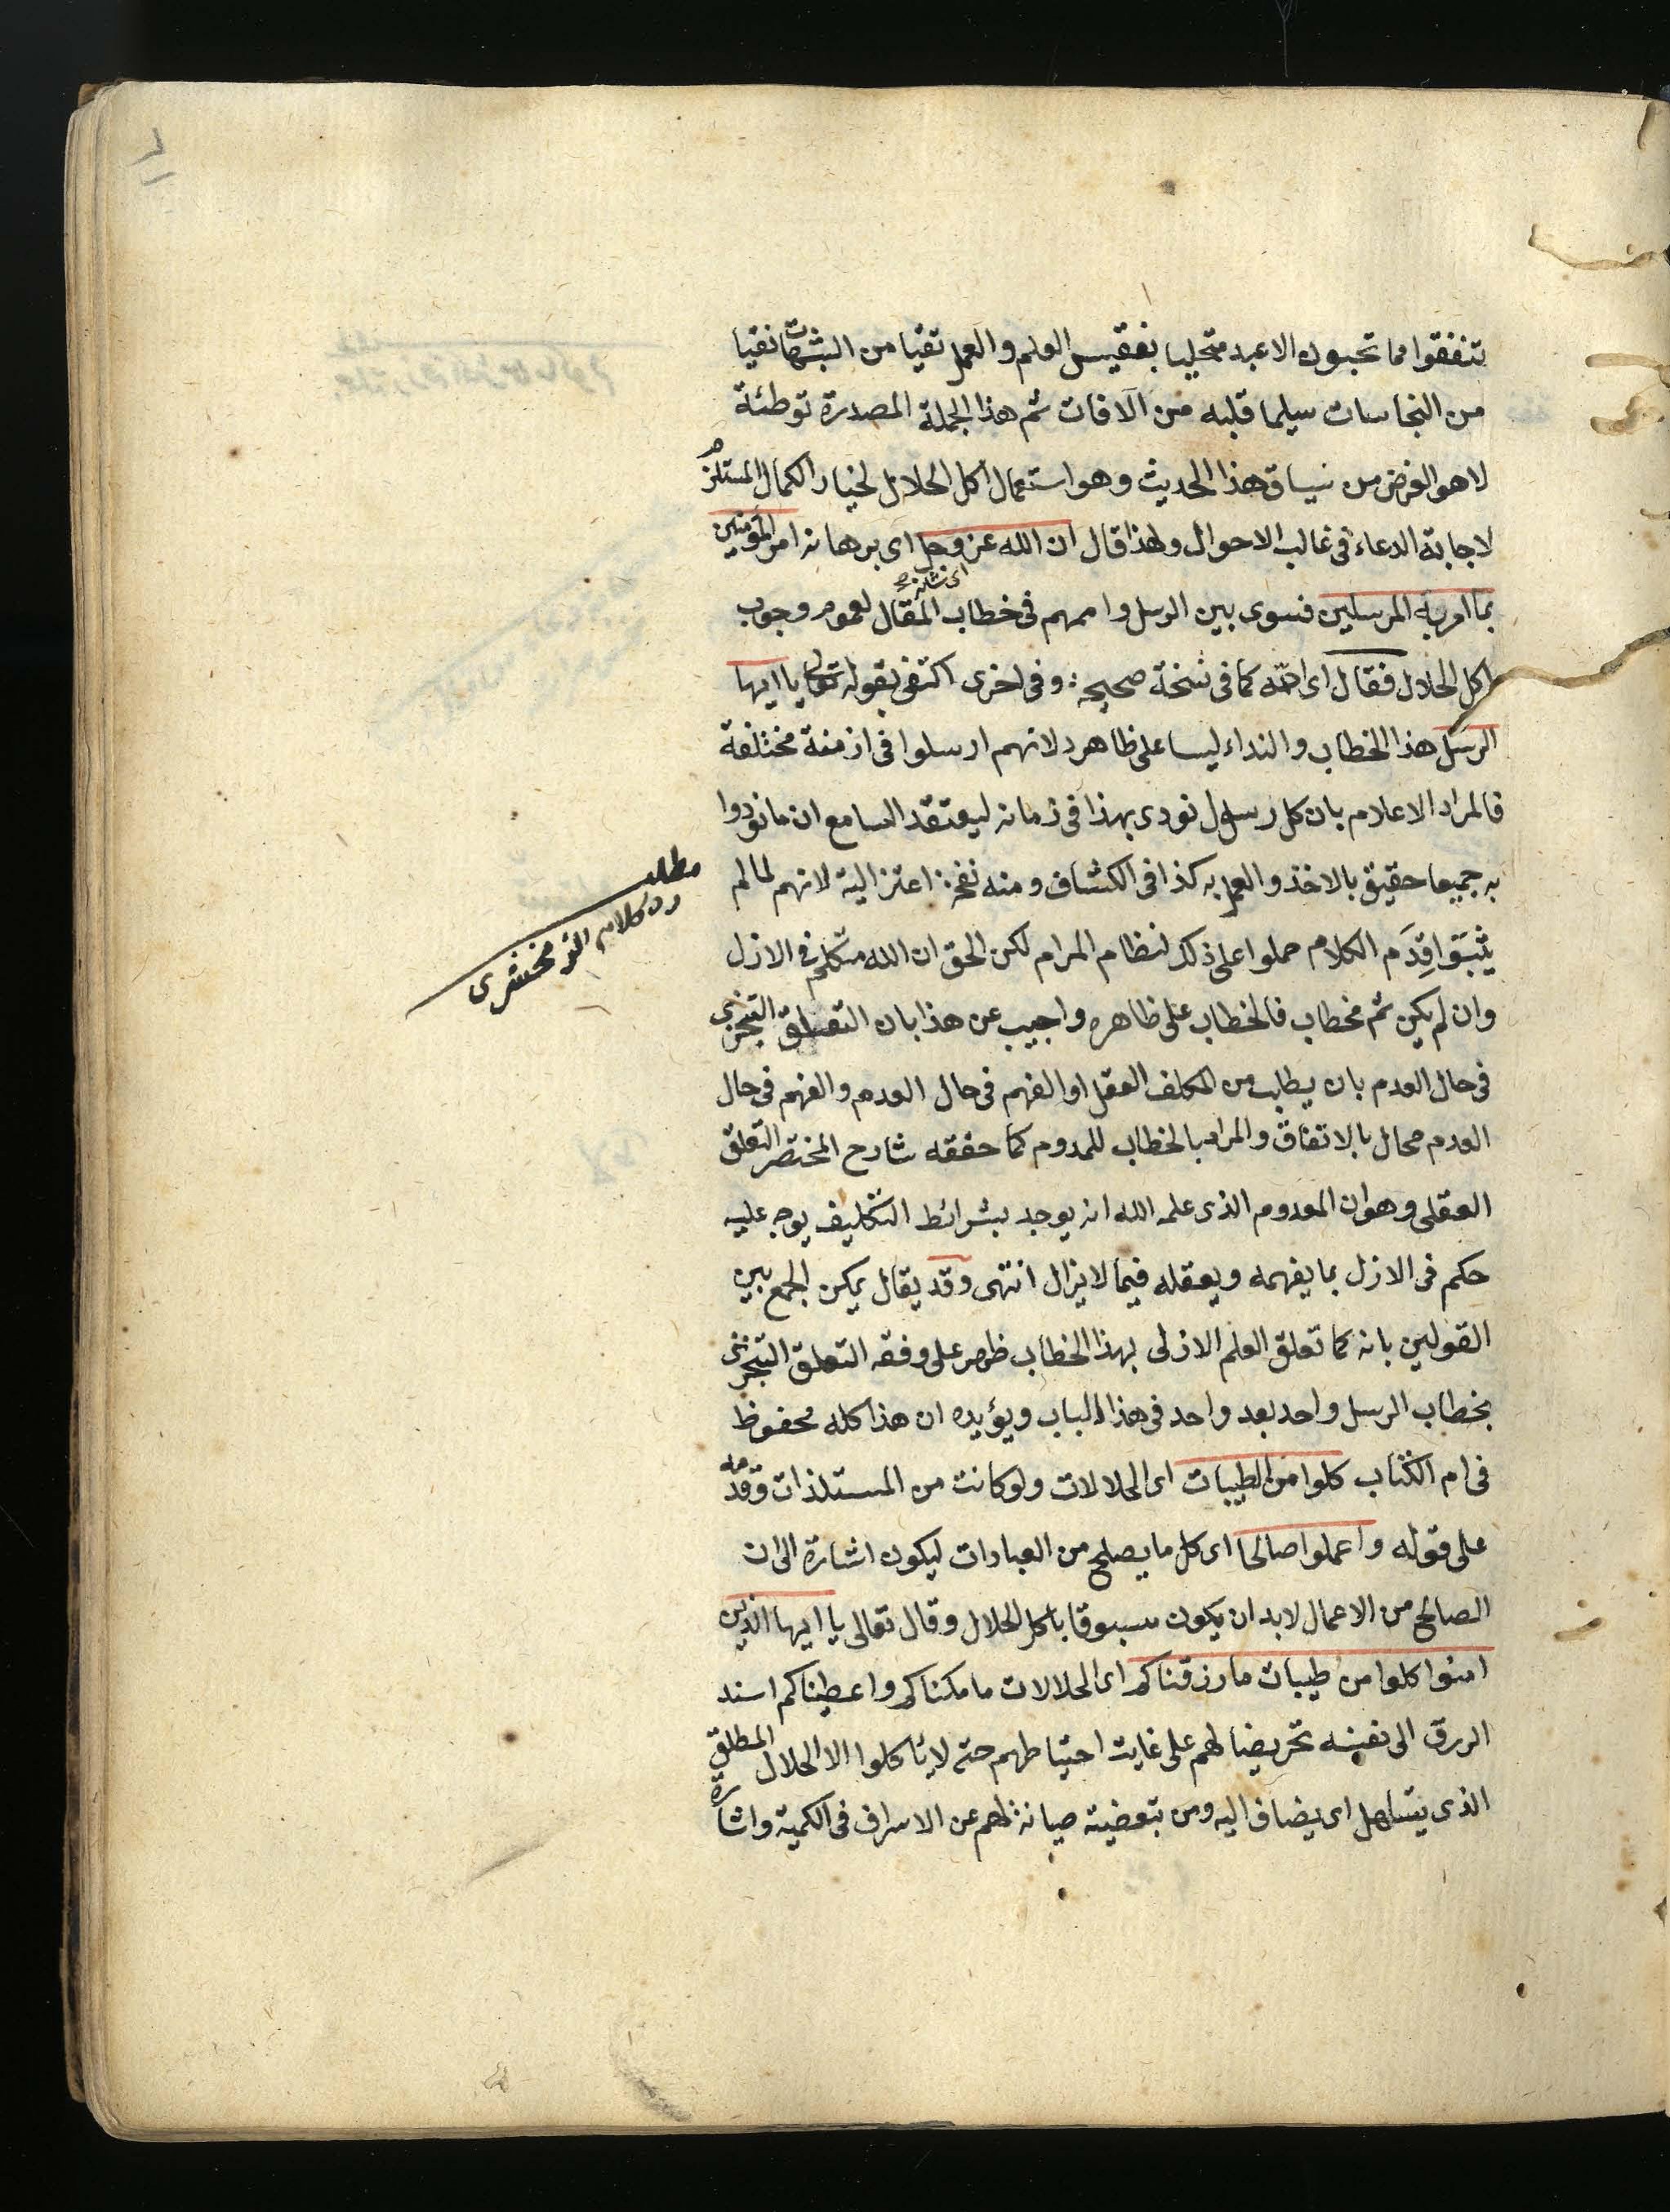 تنفقوا مما تحبون الا عبد متحليا بفقيس العلم والعمل تقيا من الشبهات نقيا
من النجاسات سليما قلبه من الآفات ثم هذا الجملة المصدرة توطئة
لا هو الغرض من سياق هذا الحديث وهو استعمال اكل الحلال لخيار الكمال المستلزم
لاجابة الدعاء فى غالب الاحوال ولهذا قال ان الله عز وجل اى برهانه امر المؤمنين
اى شانه
بما امر به المرسلين فسوى بين الرسل واممهم فى خطاب المقال لعموم وجوب
اكل الحلال فقال اى الله كما فى نسخة صحيحة وفى اخرى اكتفى بقوله تعالى يا ايها
الرسل هذا الخطاب والنداء ليسا على ظاهره لانهم ارسلوا فى ازمنة مختلفة
فالمراد الاعلام بان كل رسول نودى بهذا فى زمانه ليعتقد السامع ان ما نودوا
به جميعا حقيق بالاخذ والعمل به كذا فى الكشاف ومنه نفخة اعتزالية لانهم لما لم
يثبتوا قِدَم الكلام حملوا على ذلك لنظام المرام لكن الحق ان الله متكلم فى الازل
وان لم يكن ثم مخطاب فالخطاب على ظاهره واجيب عن هذا بان التعلق التنجزى
فى حال العدم بان يطلب من المكلف العقل او الفهم فى حال العدم والفهم فى حال
العدم محال بالاتفاق والمراد بالخطاب للمدوم كما حققه شارح المختصر التعلق
العقلى وهو ان المعدوم الذى علم الله انه يوجد بشرائط التكليف يوجه عليه
حكم فى الازل بما يفهمه ويعقله فيما لا يزال انتهى وقد يقال يمكن الجمع بين
القولين بانه كما تعلق العلم الازلى بهذا الخطاب ظهر على وفقه التعلق التنجزى
بخطاب الرسل واحد بعد واحد فى هذا الباب ويؤيده ان هذا كله محفوظ
فى ام الكتاب كلوا من الطيبات اى الحلالات ولو كانت من المستلذات وقدمه
على قوله واعملوا صالحا اى كل ما يصلح من العبادات ليكون اشارة الى ان
الصالح من الاعمال لا بد ان يكون مسبوقا باكل الحلال وقال تعالى يا ايها الذين
امنوا كلوا من طيبات ما رزقناكم اى الحلالات ما مكناكم واعطيناكم اسند
الرزق الى نفسه تحريضا لهم على غايت احتياطهم حتى لا يأكلوا الا الحلال المطلق
الذى يتساهل اى يضاف اليه ومن تبعضية صيانة لهم عن الاسراف فى الكمية واشارة
مطلب
رد كلام الزمخشرى